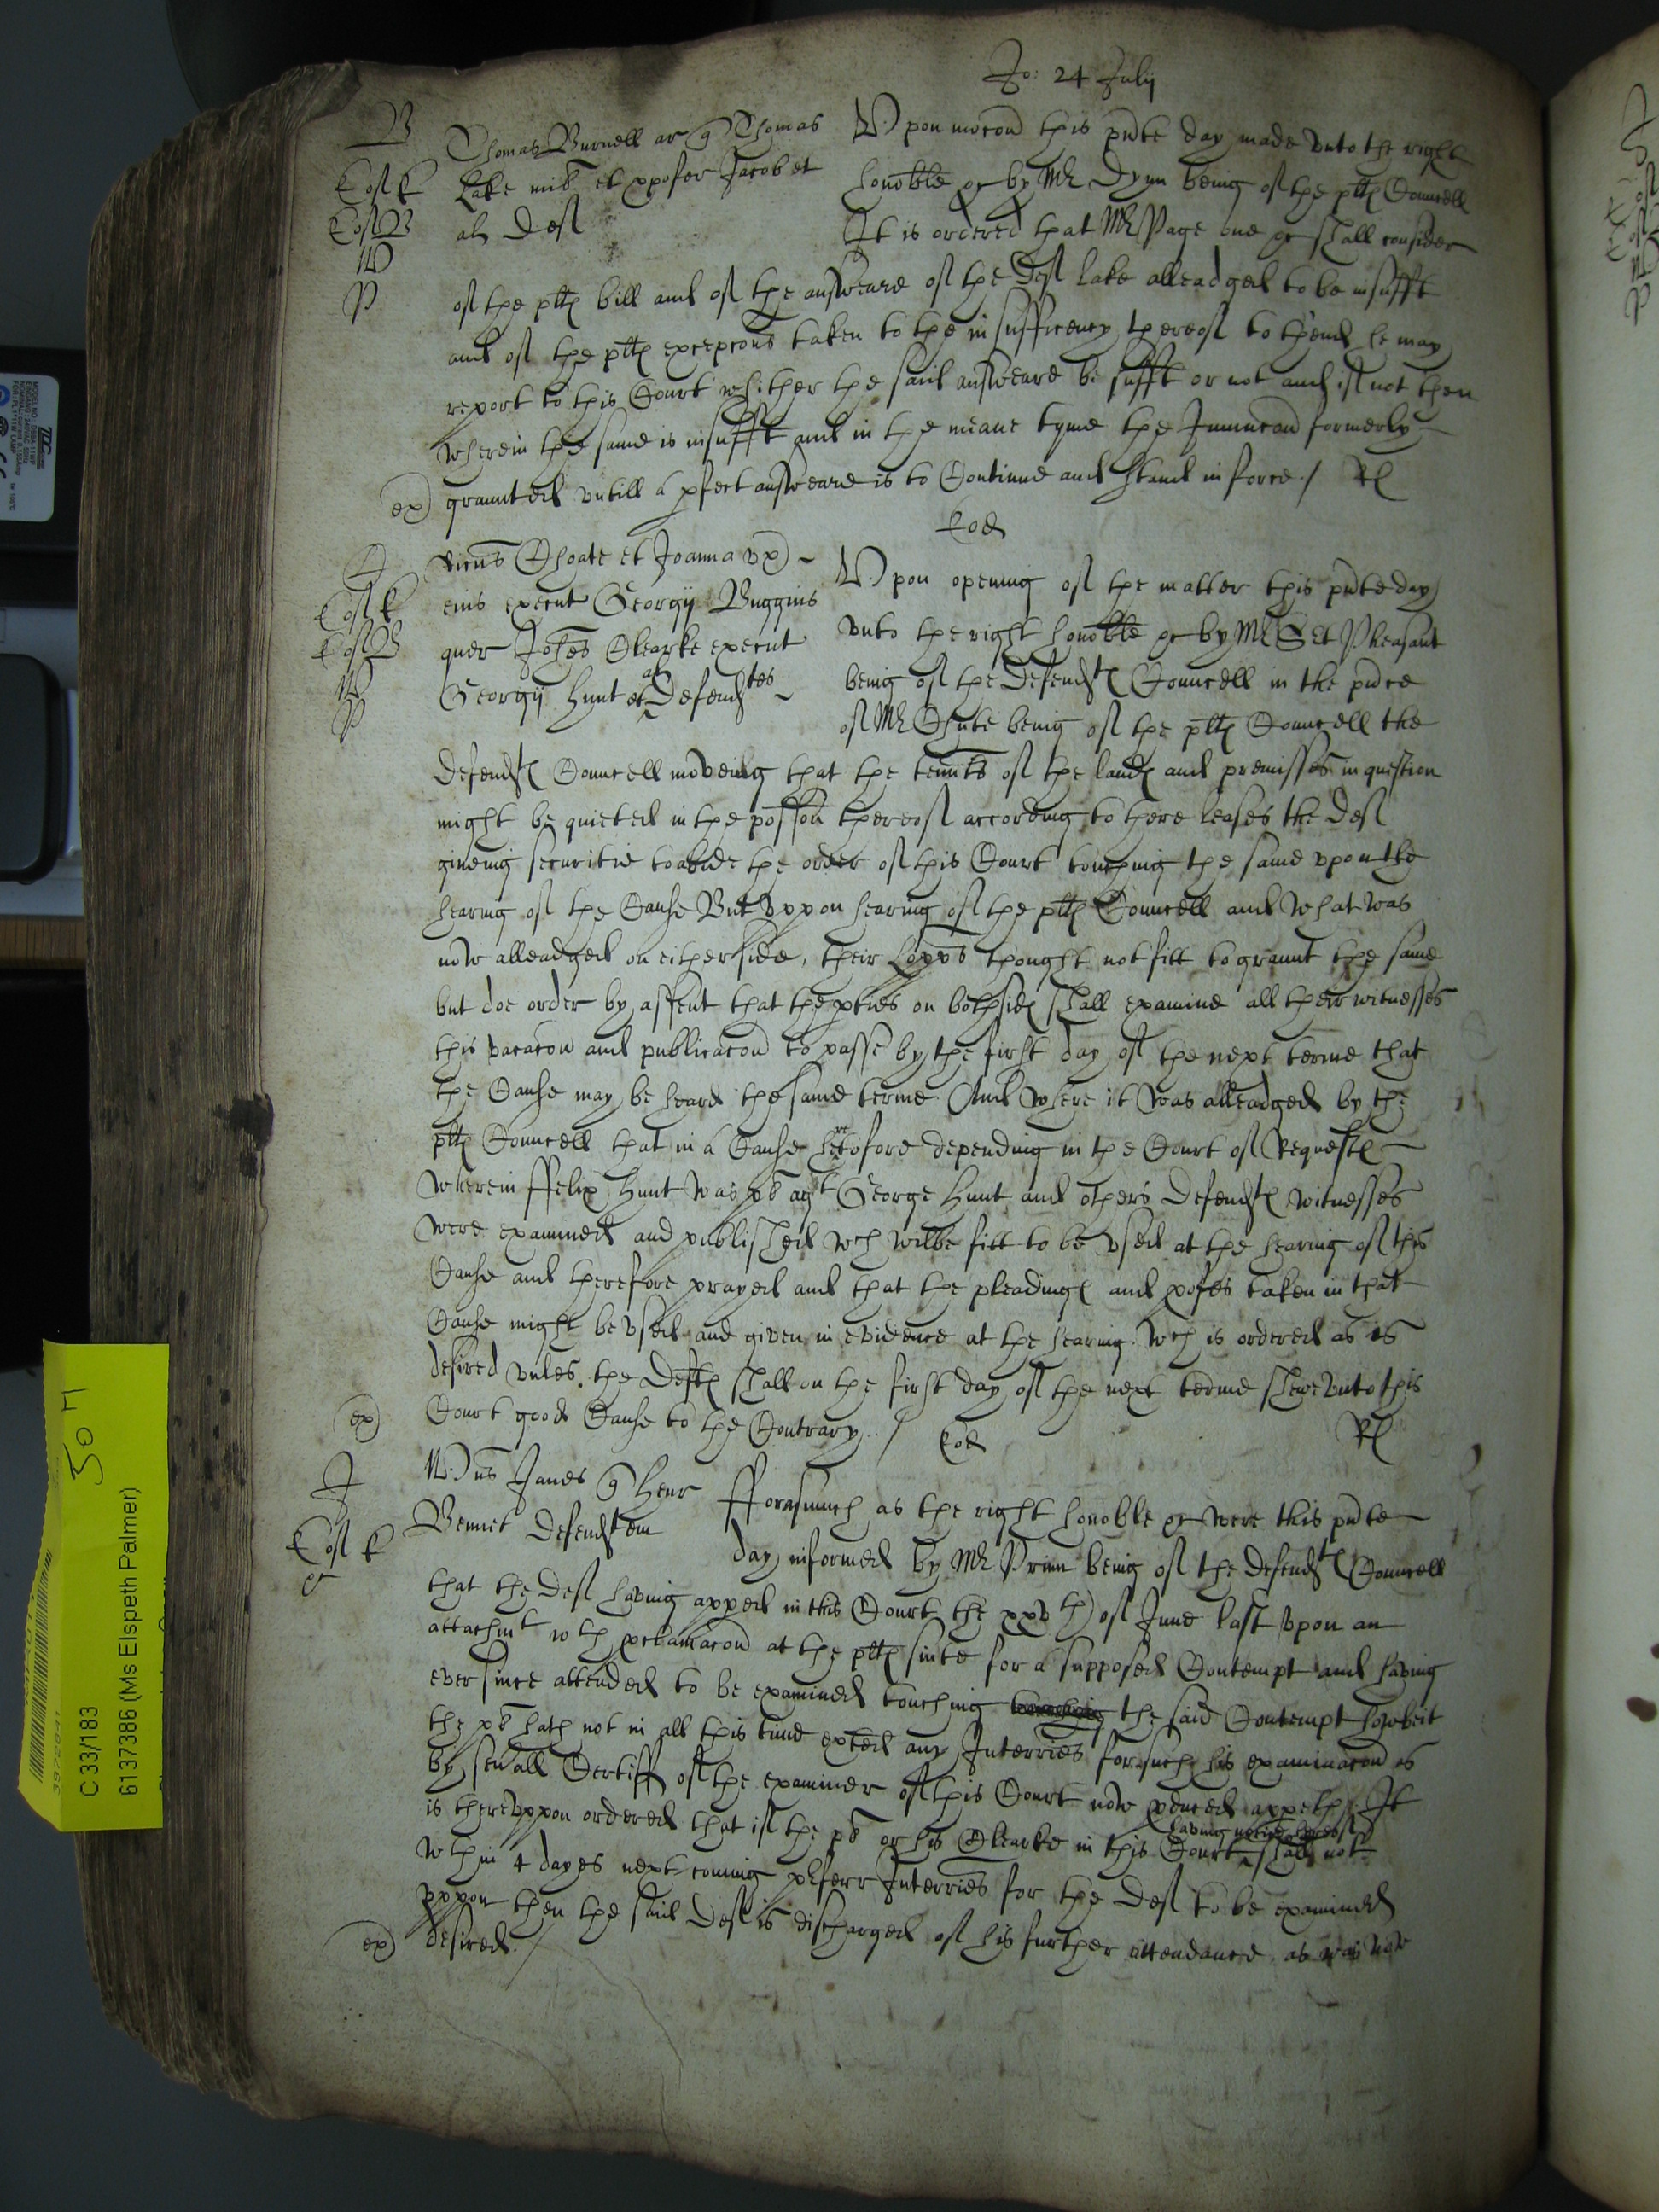 Jo: 24 July
B
Thomas Burnell ar q Thomas
Lake mil et Xpofer Jacob et
al Def
Upon mocon this pnte day made vnto the right
honoble &c by Mr Dynn being of the pltf Councell
It is ordered that Mr Page one &c shall consider
of the pltf bill and of the answeare of the Def Lake alleadged to be insufft
and of the pltf excepcons taken to the insufficency thereof to thend he may
report to this Court whither the said answeare be sufft or not and if not then
wherein the same is insufft and in the meane tyme the Iniuncon formerly
ex graunted vntill a pfect answeare is to Continue and stand in force / Rl
Eod
Choate et Joanna vx
eius execut Georgij Buggins
quer Johes Clearke execut
Georgij Hunt et al Defendtes
Upon opening of the matter this pnte day
vnto the right honoble &c by Mr Get Pheasant
being of the Defendtf Councell in the pnce
of Mr Chute being of the pltf Councell the
Defendtf Councell moveing that the tennts of the landf and premisses in question
might be quieted in the possion thereof according to there leases the Def
giueing securitie to abide the order of this Court touching the same vpon the
hearing of the Cause But vppon hearing of the pltf Councell and what was
now alleadged on either side, their Lopps thought not fitt to graunt the same
but doe order by assent that the pties on both sidf shall examine all their witnesses
this vacacon and publicacon to passe by the first day of the next terme that
the Cause may be heard the same terme And where it was alleadged by the
pltf Councell that in a Cause heretofore depending in the Court of Requestf
wherein ffelix Hunt was pl agt George Hunt and others Defendtf witnesses
were examined and published wch wilbe fitt to be vsed at the hearing of this
Cause and therefore prayed and that the pleadingf and pofes taken in that
Cause might be vsed and given in evidence at the hearing. wch is ordered as is
desired vnles the Deftf shall on the first day of the next terme shewe vnto this
ex Court good Cause to the Contrary. / Rl
Eod
Janes q Henr
Bennet Defendtem
fforasmuch as the right honoble &c were this pnte
day informed by Mr Prinn being of the defendtf Councell
that the Def having apped in this Court the xxvth of June last vpon an
attachmt wth pclamacon at the pltf suite for a supposed Contempt and having
ever since attended to be examined touching the said Contempt howbeit
the pl hath not in all this time exted any Interries for such his examinacon as
by seuall Certiff of the examiner of this Court now pduced appeth. It
is therevppon ordered that if the pl or his Clearke in this Court having notice hereof shall not
wthin 4 dayes next coming pferr Interries for the Def to be examined
vppon then the said Def is discharged of his further attendance as was now
ex desired. /
C 33/183
6137386 (Ms Elspeth Palmer)